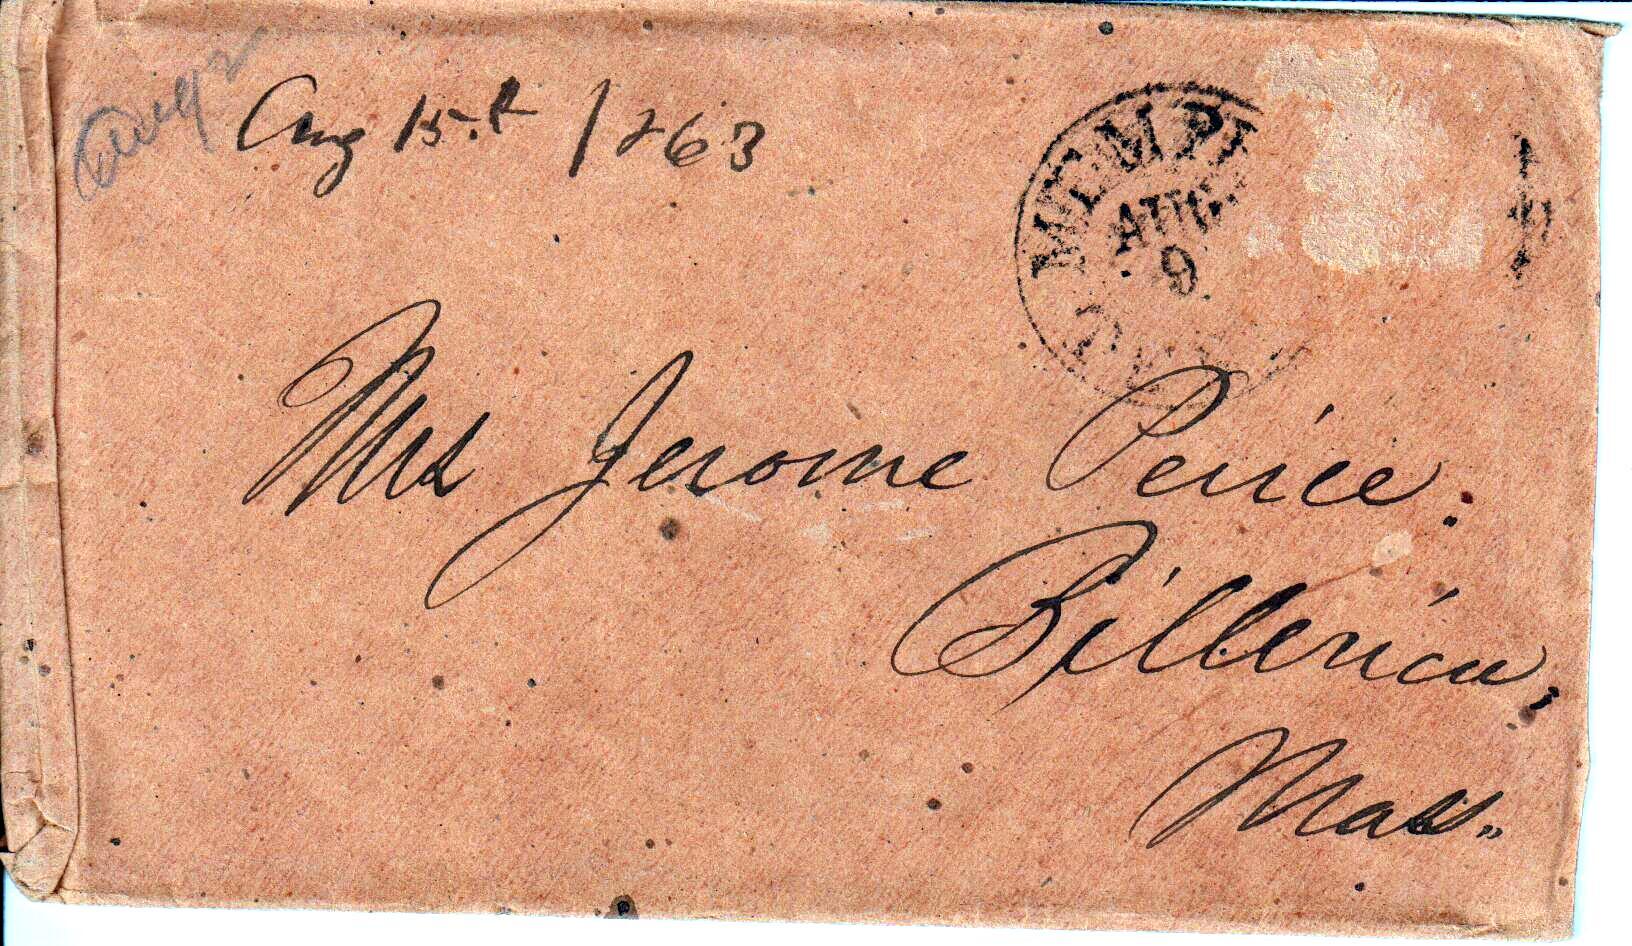 Aug 2
Aug 15th 1863
MEMPH
AUG
9
Mrs Jerome Peirce.
Billerica,
Mass.